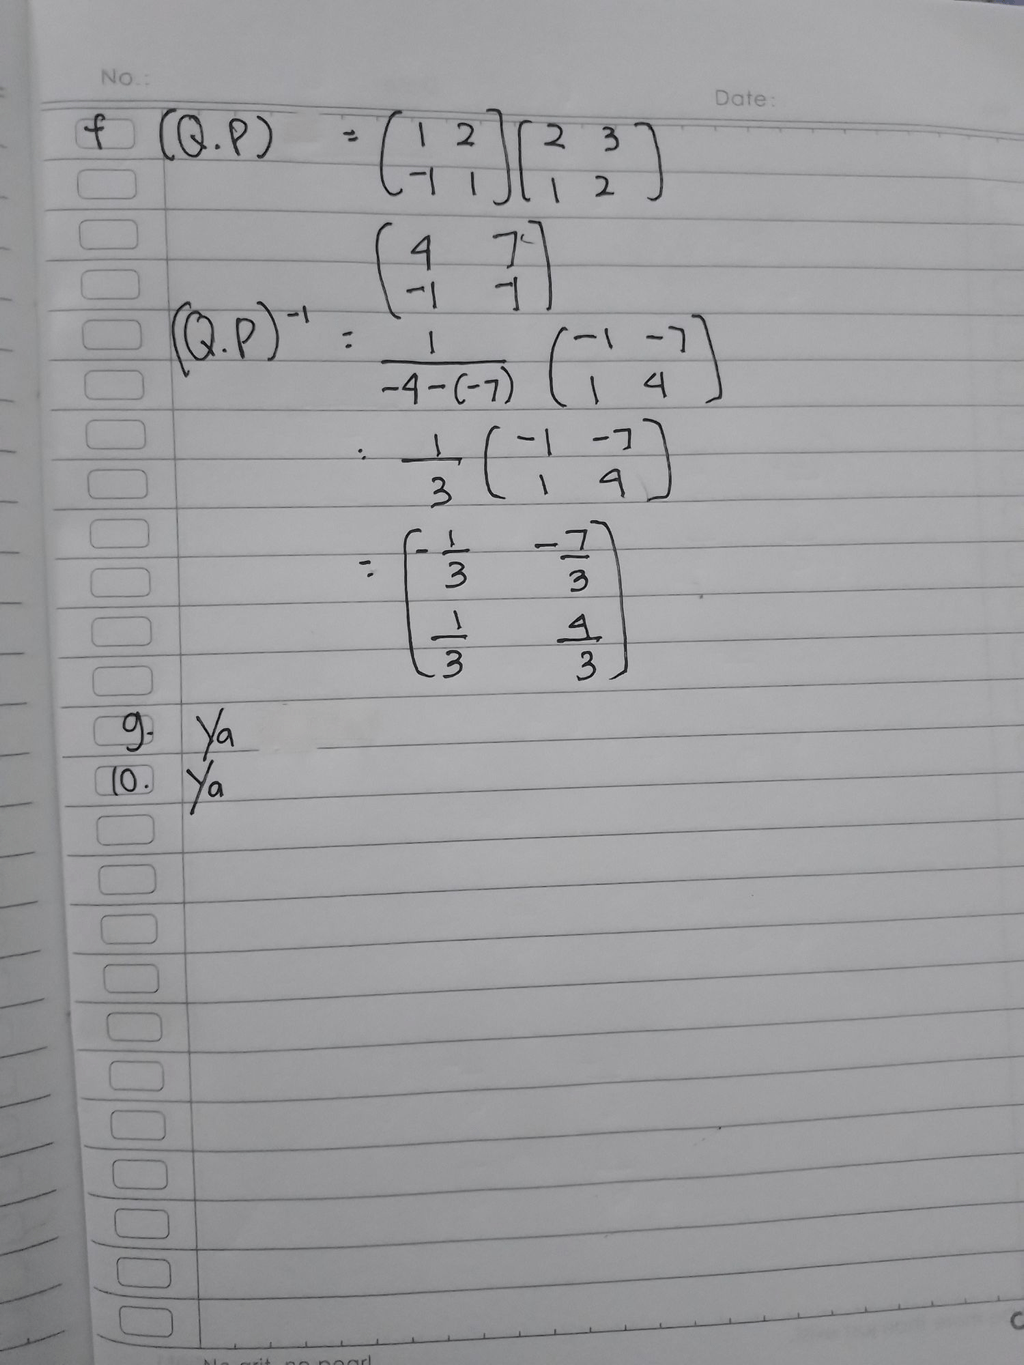 No.:
Date:
f (Q.P) = (1 2 -1 1) (2 3 1 2)
(4 7 -1 -1)
(Q.P)⁻¹ = 1/-4-(-7) (-1 -7 1 4)
: 1/3 (-1 -7 1 4)
= (-1/3 -7/3 1/3 4/3)
g. Ya
10. Ya